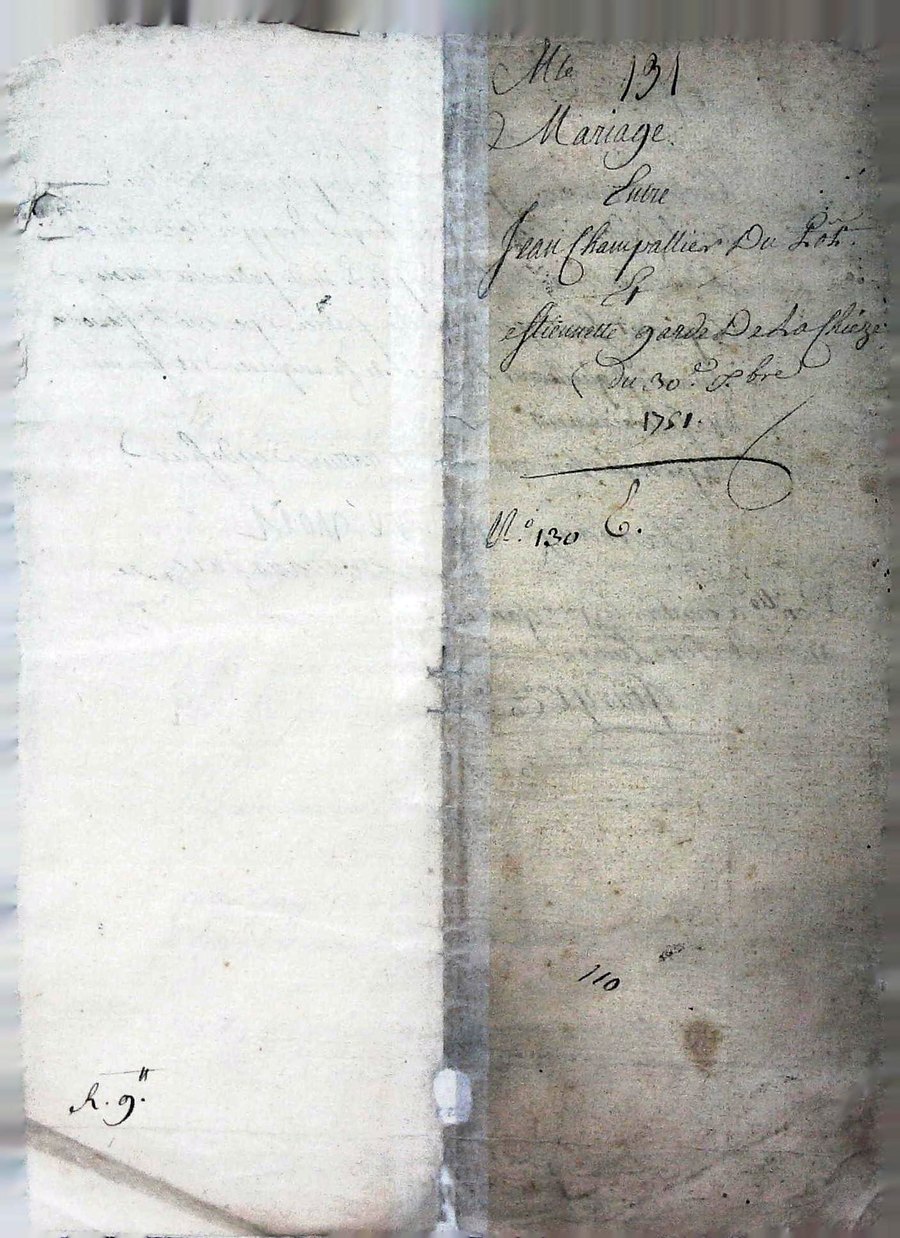 Mte 131
Mariage
Entre
Jean Champallier Du
Et
estiennette garde De La Chieze
du 30e bre
1751.
N.o 130 C.
110
R. 9.tt